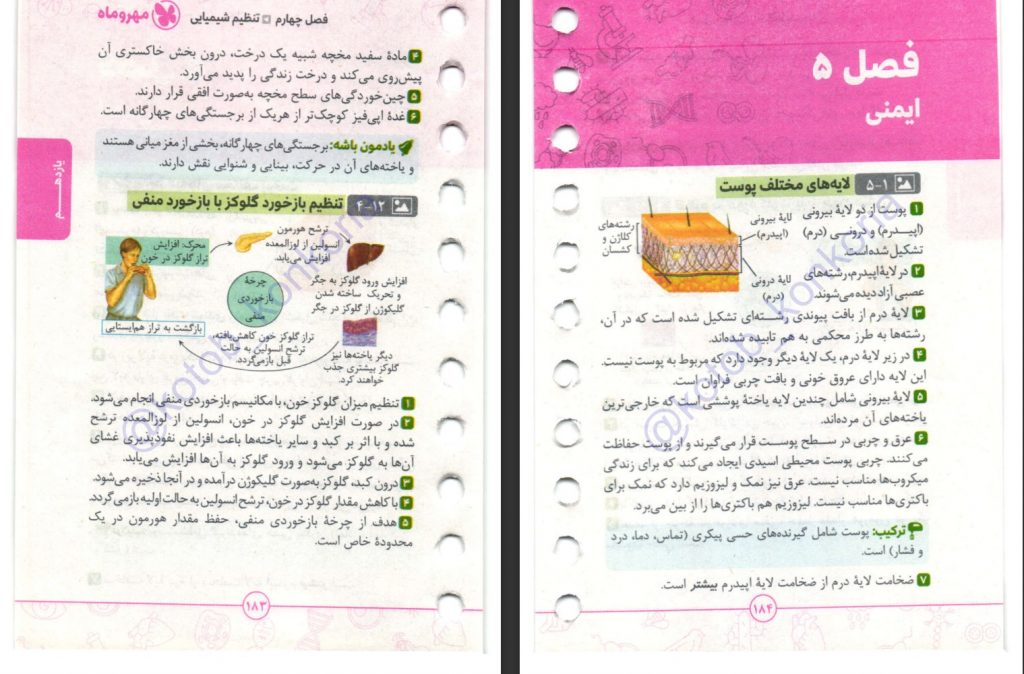 فصل چهارم تنظیم شیمیایی مهروماه
۴ مادهٔ سفید مخچه شبیه یک درخت، درون بخش خاکستری آن
پیش‌روی می‌کند و درخت زندگی را پدید می‌آورد.
۵ چین‌خوردگی‌های سطح مخچه به‌صورت افقی قرار دارند.
۶ غدهٔ اپی‌فیز کوچک‌تر از هریک از برجستگی‌های چهارگانه است.
یادمون باشه: برجستگی‌های چهارگانه، بخشی از مغز میانی هستند
و یاخته‌های آن در حرکت، بینایی و شنوایی نقش دارند.
یازدهم
۴-۱۲ تنظیم بازخورد گلوکز با بازخورد منفی
محرک: افزایش
تراز گلوکز در خون
ترشح هورمون
انسولین از لوزالمعده
افزایش می‌یابد.
افزایش ورود گلوکز به جگر
و تحریک ساخته شدن
گلیکوژن از گلوکز در جگر
چرخهٔ
بازخوردی
منفی
دیگر یاخته‌ها نیز
گلوکز بیشتری جذب
خواهند کرد.
تراز گلوکز خون کاهش‌یافته،
ترشح انسولین به حالت
قبل بازمی‌گردد.
بازگشت به تراز هم‌ایستایی
۱ تنظیم میزان گلوکز خون، با مکانیسم بازخوردی منفی انجام می‌شود.
۲ در صورت افزایش گلوکز در خون، انسولین از لوزالمعده ترشح
شده و با اثر بر کبد و سایر یاخته‌ها باعث افزایش نفوذپذیری غشای
آن‌ها به گلوکز می‌شود و ورود گلوکز به آن‌ها افزایش می‌یابد.
۳ درون کبد، گلوکز به‌صورت گلیکوژن درآمده و در آنجا ذخیره می‌شود.
۴ با کاهش مقدار گلوکز در خون، ترشح انسولین به حالت اولیه بازمی‌گردد.
۵ هدف از چرخهٔ بازخوردی منفی، حفظ مقدار هورمون در یک
محدودهٔ خاص است.
۱۸۳
@kotob_konkoria
فصل ۵
ایمنی
۵-۱ لایه‌های مختلف پوست
۱ پوست از دو لایهٔ بیرونی
(اپیدرم) و درونی (درم)
تشکیل شده‌است.
۲ در لایهٔ اپیدرم، رشته‌های
عصبی آزاد دیده می‌شوند.
لایهٔ بیرونی
(اپیدرم)
لایهٔ درونی
(درم)
رشته‌های
کلاژن و
کشسان
۳ لایهٔ درم از بافت پیوندی رشته‌ای تشکیل شده است که در آن،
رشته‌ها به طرز محکمی به هم تابیده شده‌اند.
۴ در زیر لایهٔ درم، یک لایهٔ دیگر وجود دارد که مربوط به پوست نیست.
این لایه دارای عروق خونی و بافت چربی فراوان است.
۵ لایهٔ بیرونی شامل چندین لایه یاختهٔ پوششی است که خارجی‌ترین
یاخته‌های آن مرده‌اند.
۶ عرق و چربی در سطح پوست قرار می‌گیرند و از پوست حفاظت
می‌کنند. چربی پوست محیطی اسیدی ایجاد می‌کند که برای زندگی
میکروب‌ها مناسب نیست. عرق نیز نمک و لیزوزیم دارد که نمک برای
باکتری‌ها مناسب نیست. لیزوزیم هم باکتری‌ها را از بین می‌برد.
ترکیب: پوست شامل گیرنده‌های حسی پیکری (تماس، دما، درد
و فشار) است.
۷ ضخامت لایهٔ درم از ضخامت لایهٔ اپیدرم بیشتر است.
۱۸۴
@kotob_konkoria